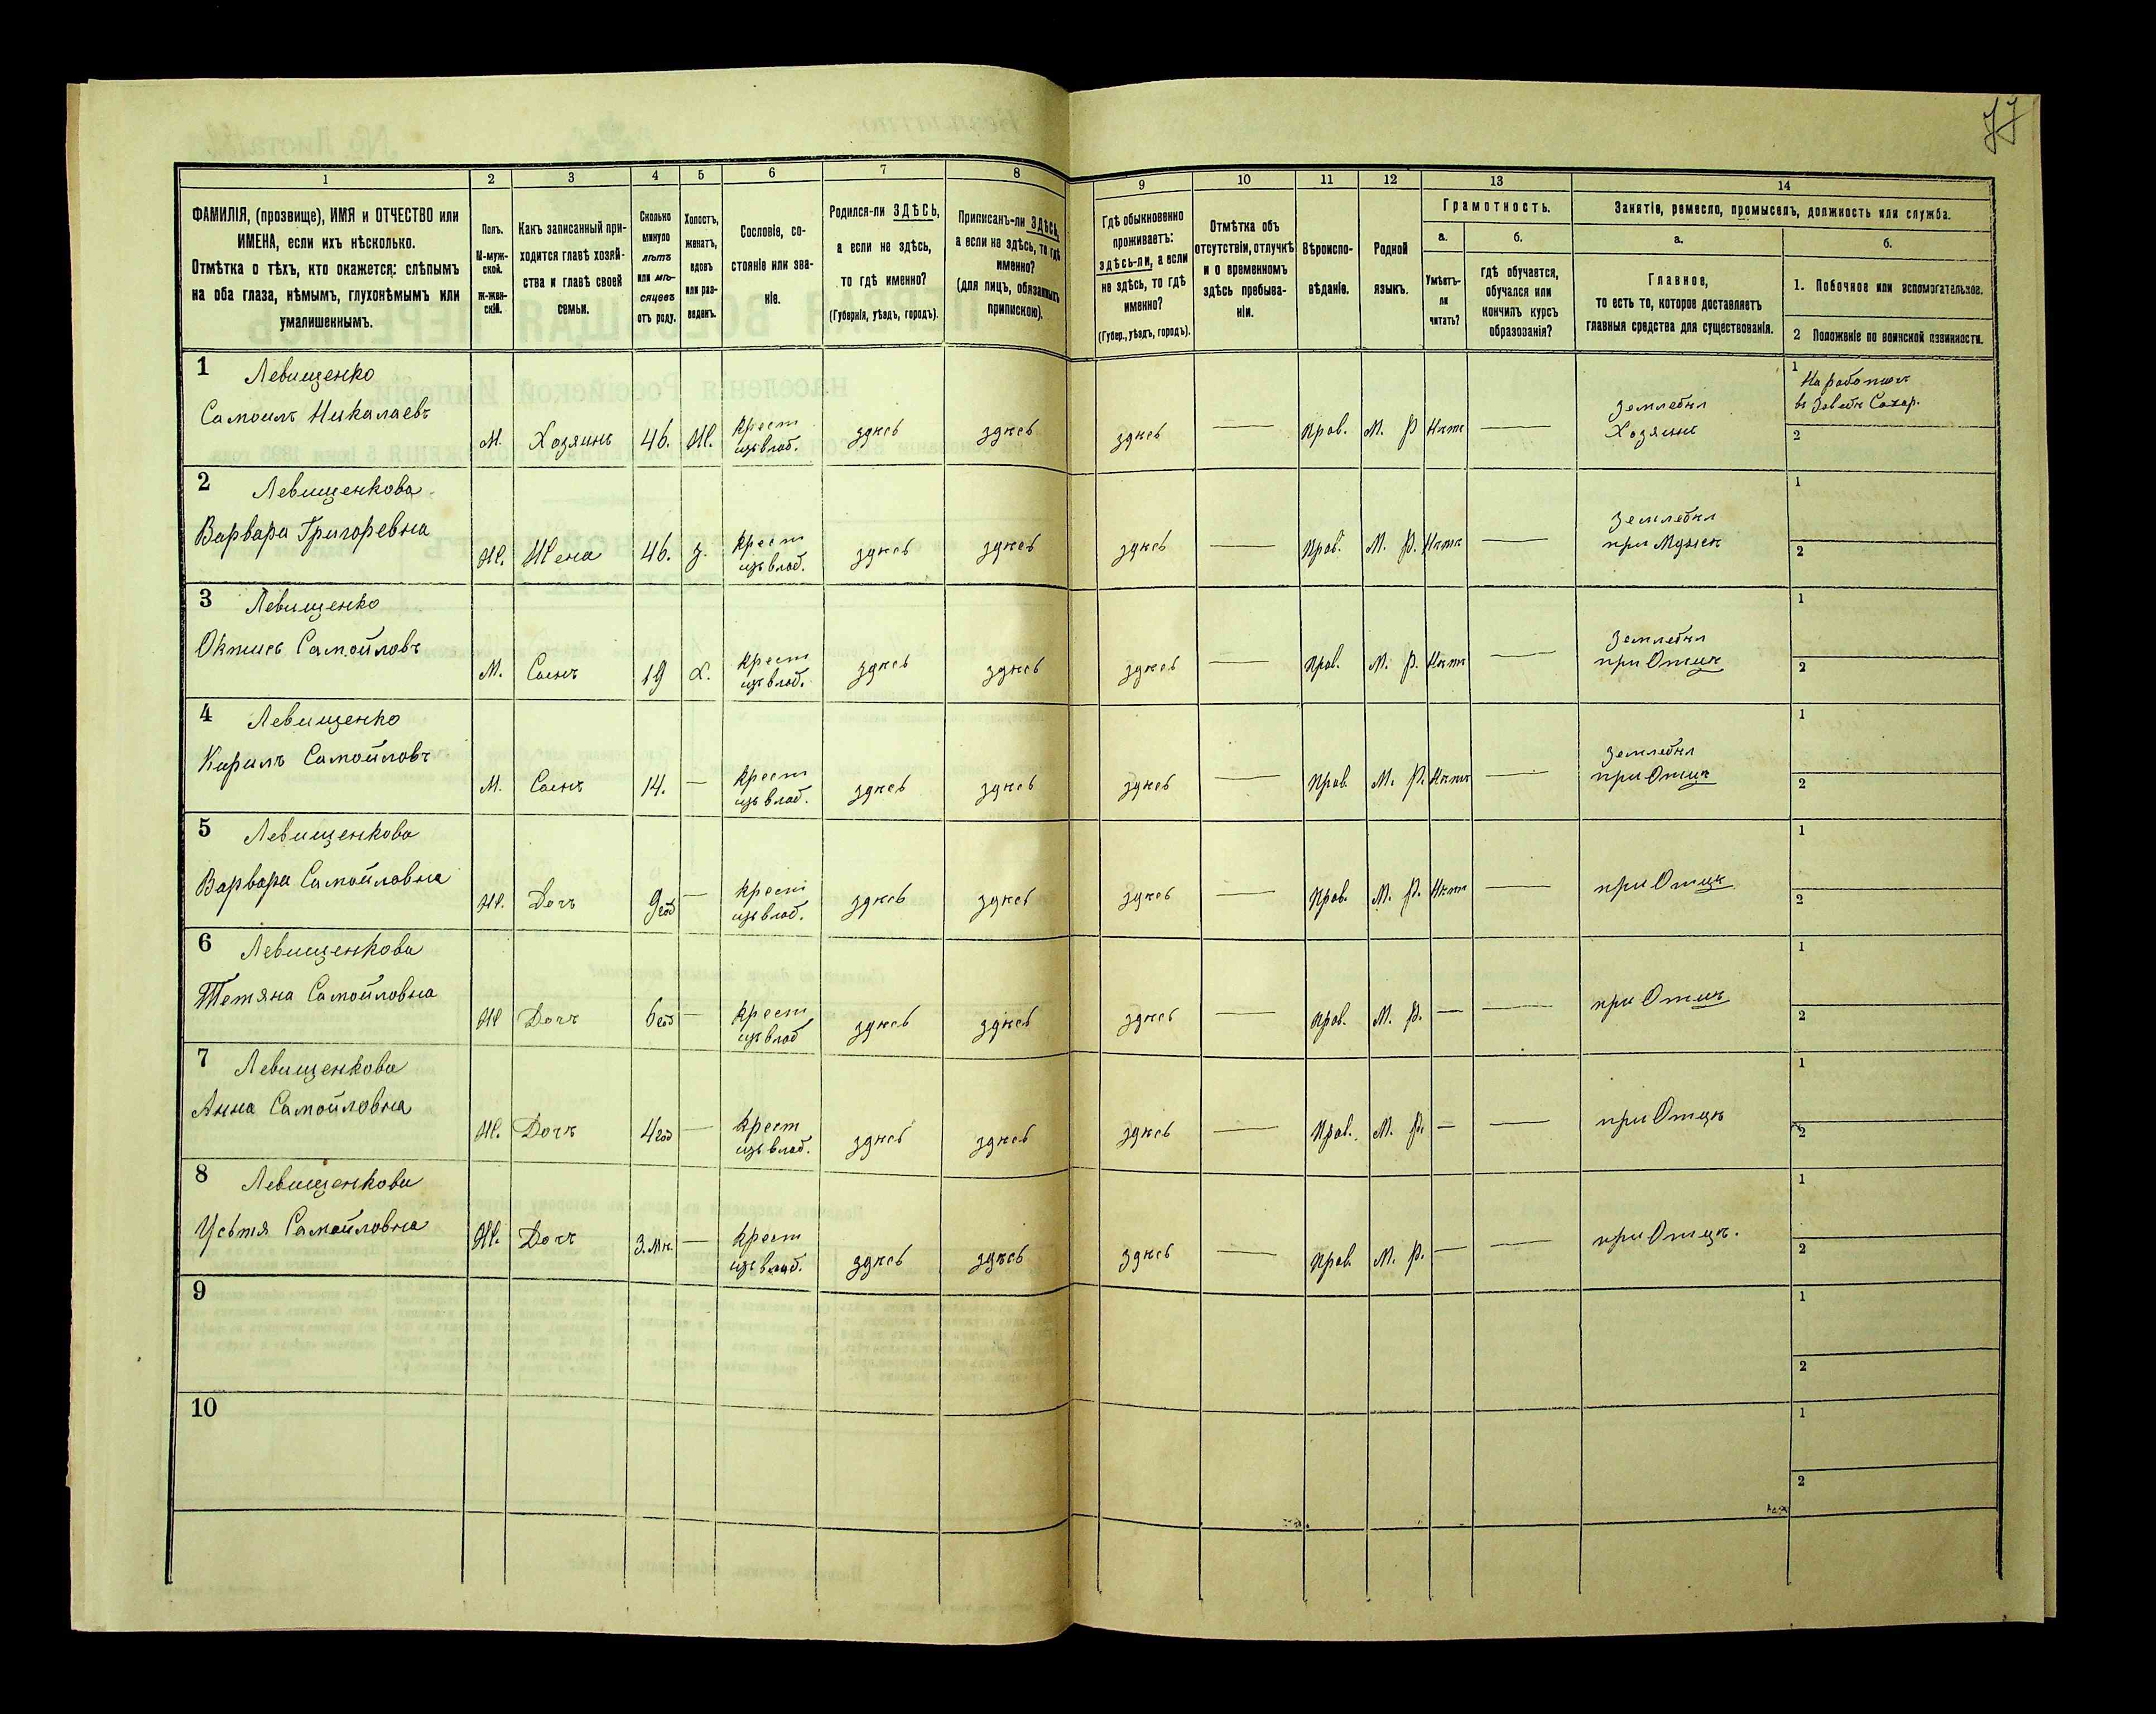 77
1 2 3 4 5 6 7 8 9 10 11 12 13 14
ФАМИЛІЯ, (прозвище), ИМЯ и ОТЧЕСТВО или
ИМЕНА, если ихъ нѣсколько.
Отмѣтка о тѣхъ, кто окажется: слѣпымъ
на оба глаза, нѣмымъ, глухонѣмымъ или
умалишеннымъ.
Полъ.
М-муж-
ской.
ж-жен-
скій.
Какъ записанный при-
ходится главѣ хозяй-
ства и главѣ своей
семьи.
Сколько
минуло
лѣтъ
или мѣ-
сяцевъ
отъ роду.
Холостъ,
женатъ,
вдовъ
или раз-
веденъ.
Сословіе, со-
стояніе или зва-
ніе.
Родился-ли ЗДѢСЬ,
а если не здѣсь,
то гдѣ именно?
(Губернія, уѣздъ, городъ).
Приписанъ-ли ЗДѢСЬ,
а если не здѣсь, то гдѣ
именно?
(для лицъ, обязанныхъ
припискою).
Гдѣ обыкновенно
проживаетъ:
здѣсь-ли, а если
не здѣсь, то гдѣ
именно?
(Губер., уѣздъ, городъ).
Отмѣтка объ
отсутствіи, отлучкѣ
и о временномъ
здѣсь пребыва-
ніи.
Вѣроиспо-
вѣданіе.
Родной
языкъ.
Грамотность.
а.
Умѣетъ-
ли
читать?
б.
гдѣ обучается,
обучался или
кончилъ курсъ
образованія?
Занятіе, ремесло, промыселъ, должность или служба.
а.
Главное,
то есть то, которое доставляетъ
главныя средства для существованія.
б.
1. Побочное или вспомогательное.
2 Положеніе по воинской повинности.
1 Левищенко
Самоилъ Николаевъ
М. Хозяинъ 46. Ж. Крест
изъ влад. здѣсь здѣсь здѣсь — Прав. М. Р Нѣтъ — Земледѣл
Хозяинъ
1 На работахъ
въ Завод Сахар.
2
2 Левищенкова
Варвара Григоревна
Ж. Жена 46. З. Крест
изъ влад. здѣсь здѣсь здѣсь — Прав. М. Р. Нѣтъ — Земледѣл
при Мужѣ
1
2
3 Левищенко
Октисъ Самойловъ
М. Сынъ 19 Х. Крест
изъ влад. здѣсь здѣсь здѣсь — Прав. М. Р. Нѣтъ — Земледѣл
при Отцѣ
1
2
4 Левищенко
Кирилъ Самойловъ
М. Сынъ 14. — Крест
изъ влад. здѣсь здѣсь здѣсь — Прав. М. Р. Нѣтъ — Земледѣл
при Отцѣ
1
2
5 Левищенкова
Варвара Самойловна
Ж. Дочъ 9год — Крест
изъ влад. здѣсь здѣсь здѣсь — Прав. М. Р. Нѣтъ — при Отцѣ
1
2
6 Левищенкова
Тетяна Самойловна
Ж Дочъ 6год — Крест
изъ влад здѣсь здѣсь здѣсь — Прав. М. Р. — — при Отцѣ
1
2
7 Левищенкова
Анна Самойловна
Ж. Дочъ 4год — Крест
изъ влад. здѣсь здѣсь здѣсь — Прав. М. Р. — — при Отцѣ
1
2
8 Левищенкова
Усьтя Самойловна
Ж. Дочъ 3.мѣ. — Крест
изъ влад. здѣсь здѣсь здѣсь — Прав. М. Р. — — при Отцѣ.
1
2
9
1
2
10
1
2